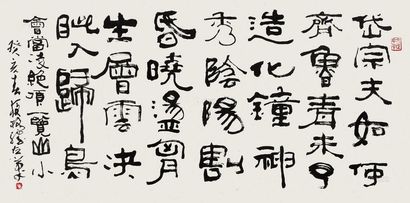 岱宗夫如何
齊魯青未了
造化鐘神
秀陰陽割
昏曉盪胸
生層雲決
眦入歸鳥
會當淩絕頂一覽山小
癸亥春